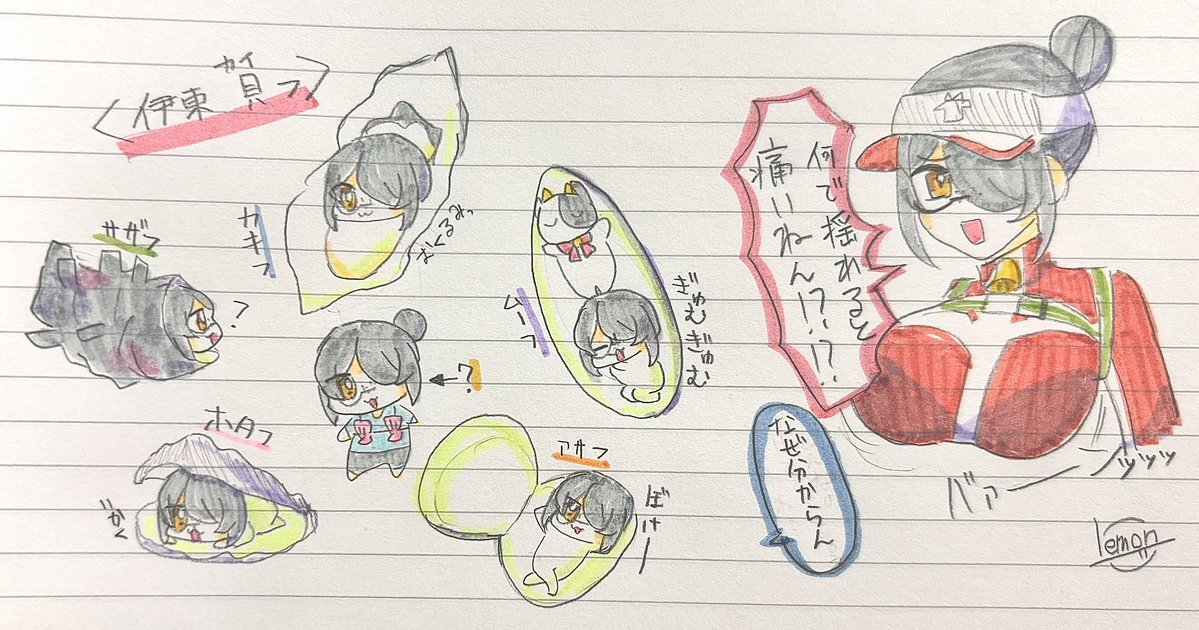 カイ
<伊東 貝フ>
カキフ
ざくるみっ
サザフ
?
ムーフ
ぎゅむぎゅむ
?
ホタフ
がく
アサフ
ぼけー
何で揺れると
痛いねん!?!?
なぜ分からん
バァーンッッッ
lemon